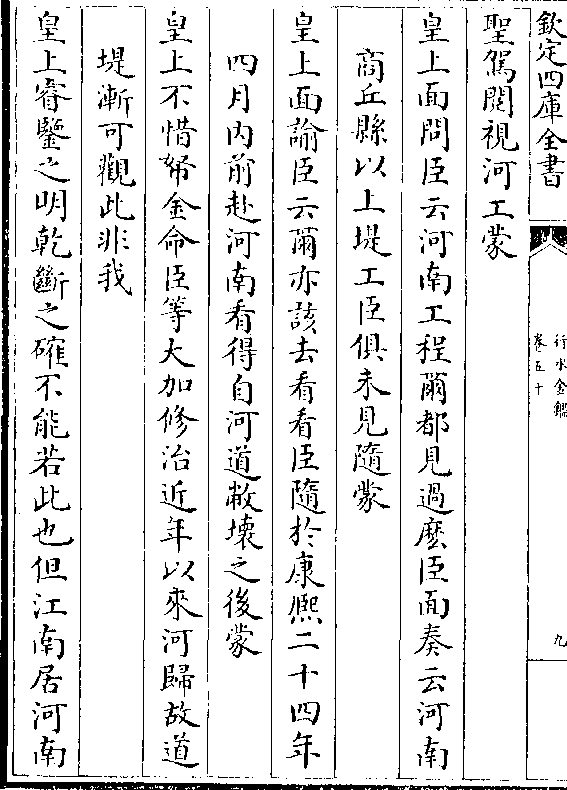 欽定四庫全書
行水金鑑
卷五十
九
聖駕閱視河工蒙
皇上面問臣云河南工程爾都見過麽臣面奏云河南
商丘縣以上堤工臣俱未見隨蒙
皇上面諭臣云爾亦該去看看臣隨於康熙二十四年
四月內前赴河南看得自河道敝壞之後蒙
皇上不惜帑金命臣等大加修治近年以來河歸故道
堤漸可觀此非我
皇上睿鑒之明乾斷之確不能若此也但江南居河南